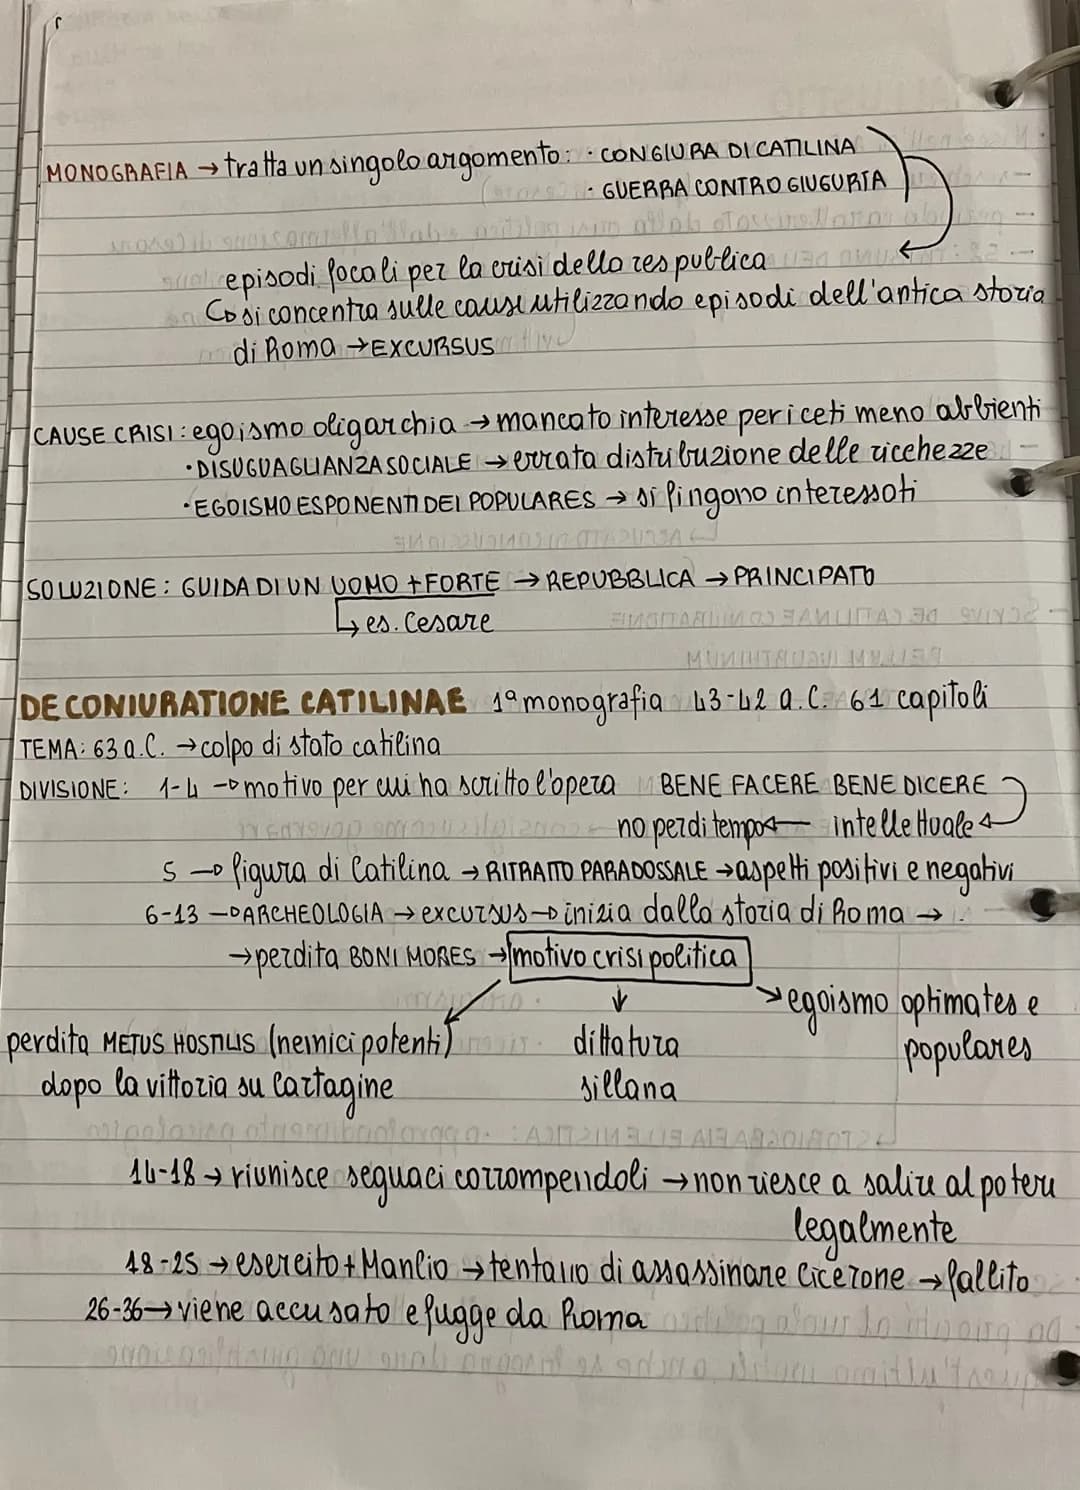 MONOGRAFIA → tratta un singolo argomento: · CONGIURA DI CATILINA
· GUERRA CONTRO GIUGURTA
episodi focali per la crisi della res publica
↳ si concentra sulle cause utilizzando episodi dell'antica storia
di Roma → EXCURSUS
CAUSE CRISI: egoismo oligarchia → mancato interesse per i ceti meno abbienti
· DISUGUAGLIANZA SOCIALE → errata distribuzione delle ricchezze
· EGOISMO ESPONENTI DEI POPULARES → si fingono interessati
SOLUZIONE: GUIDA DI UN UOMO + FORTE → REPUBBLICA → PRINCIPATO
↳ es. Cesare
DE CONIURATIONE CATILINAE 1ª monografia 43-42 a.C. 61 capitoli
TEMA: 63 a.C. → colpo di stato catilina
DIVISIONE: 1-4 → motivo per cui ha scritto l'opera BENE FACERE BENE DICERE
no perdi tempo ← intellettuale ←
5 → figura di Catilina → RITRATTO PARADOSSALE → aspetti positivi e negativi
6-13 → ARCHEOLOGIA → excursus → inizia dalla storia di Roma →
→ perdita BONI MORES → motivo crisi politica
→ egoismo optimates e
perdita METUS HOSTILIS (nemici potenti) dittatura populares
dopo la vittoria su Cartagine sillana
14-18 → riunisce seguaci corrompendoli → non riesce a salire al potere
legalmente
18-25 → esercito + Manlio → tentano di assassinare Cicerone → fallito
26-36 → viene accusato e fugge da Roma